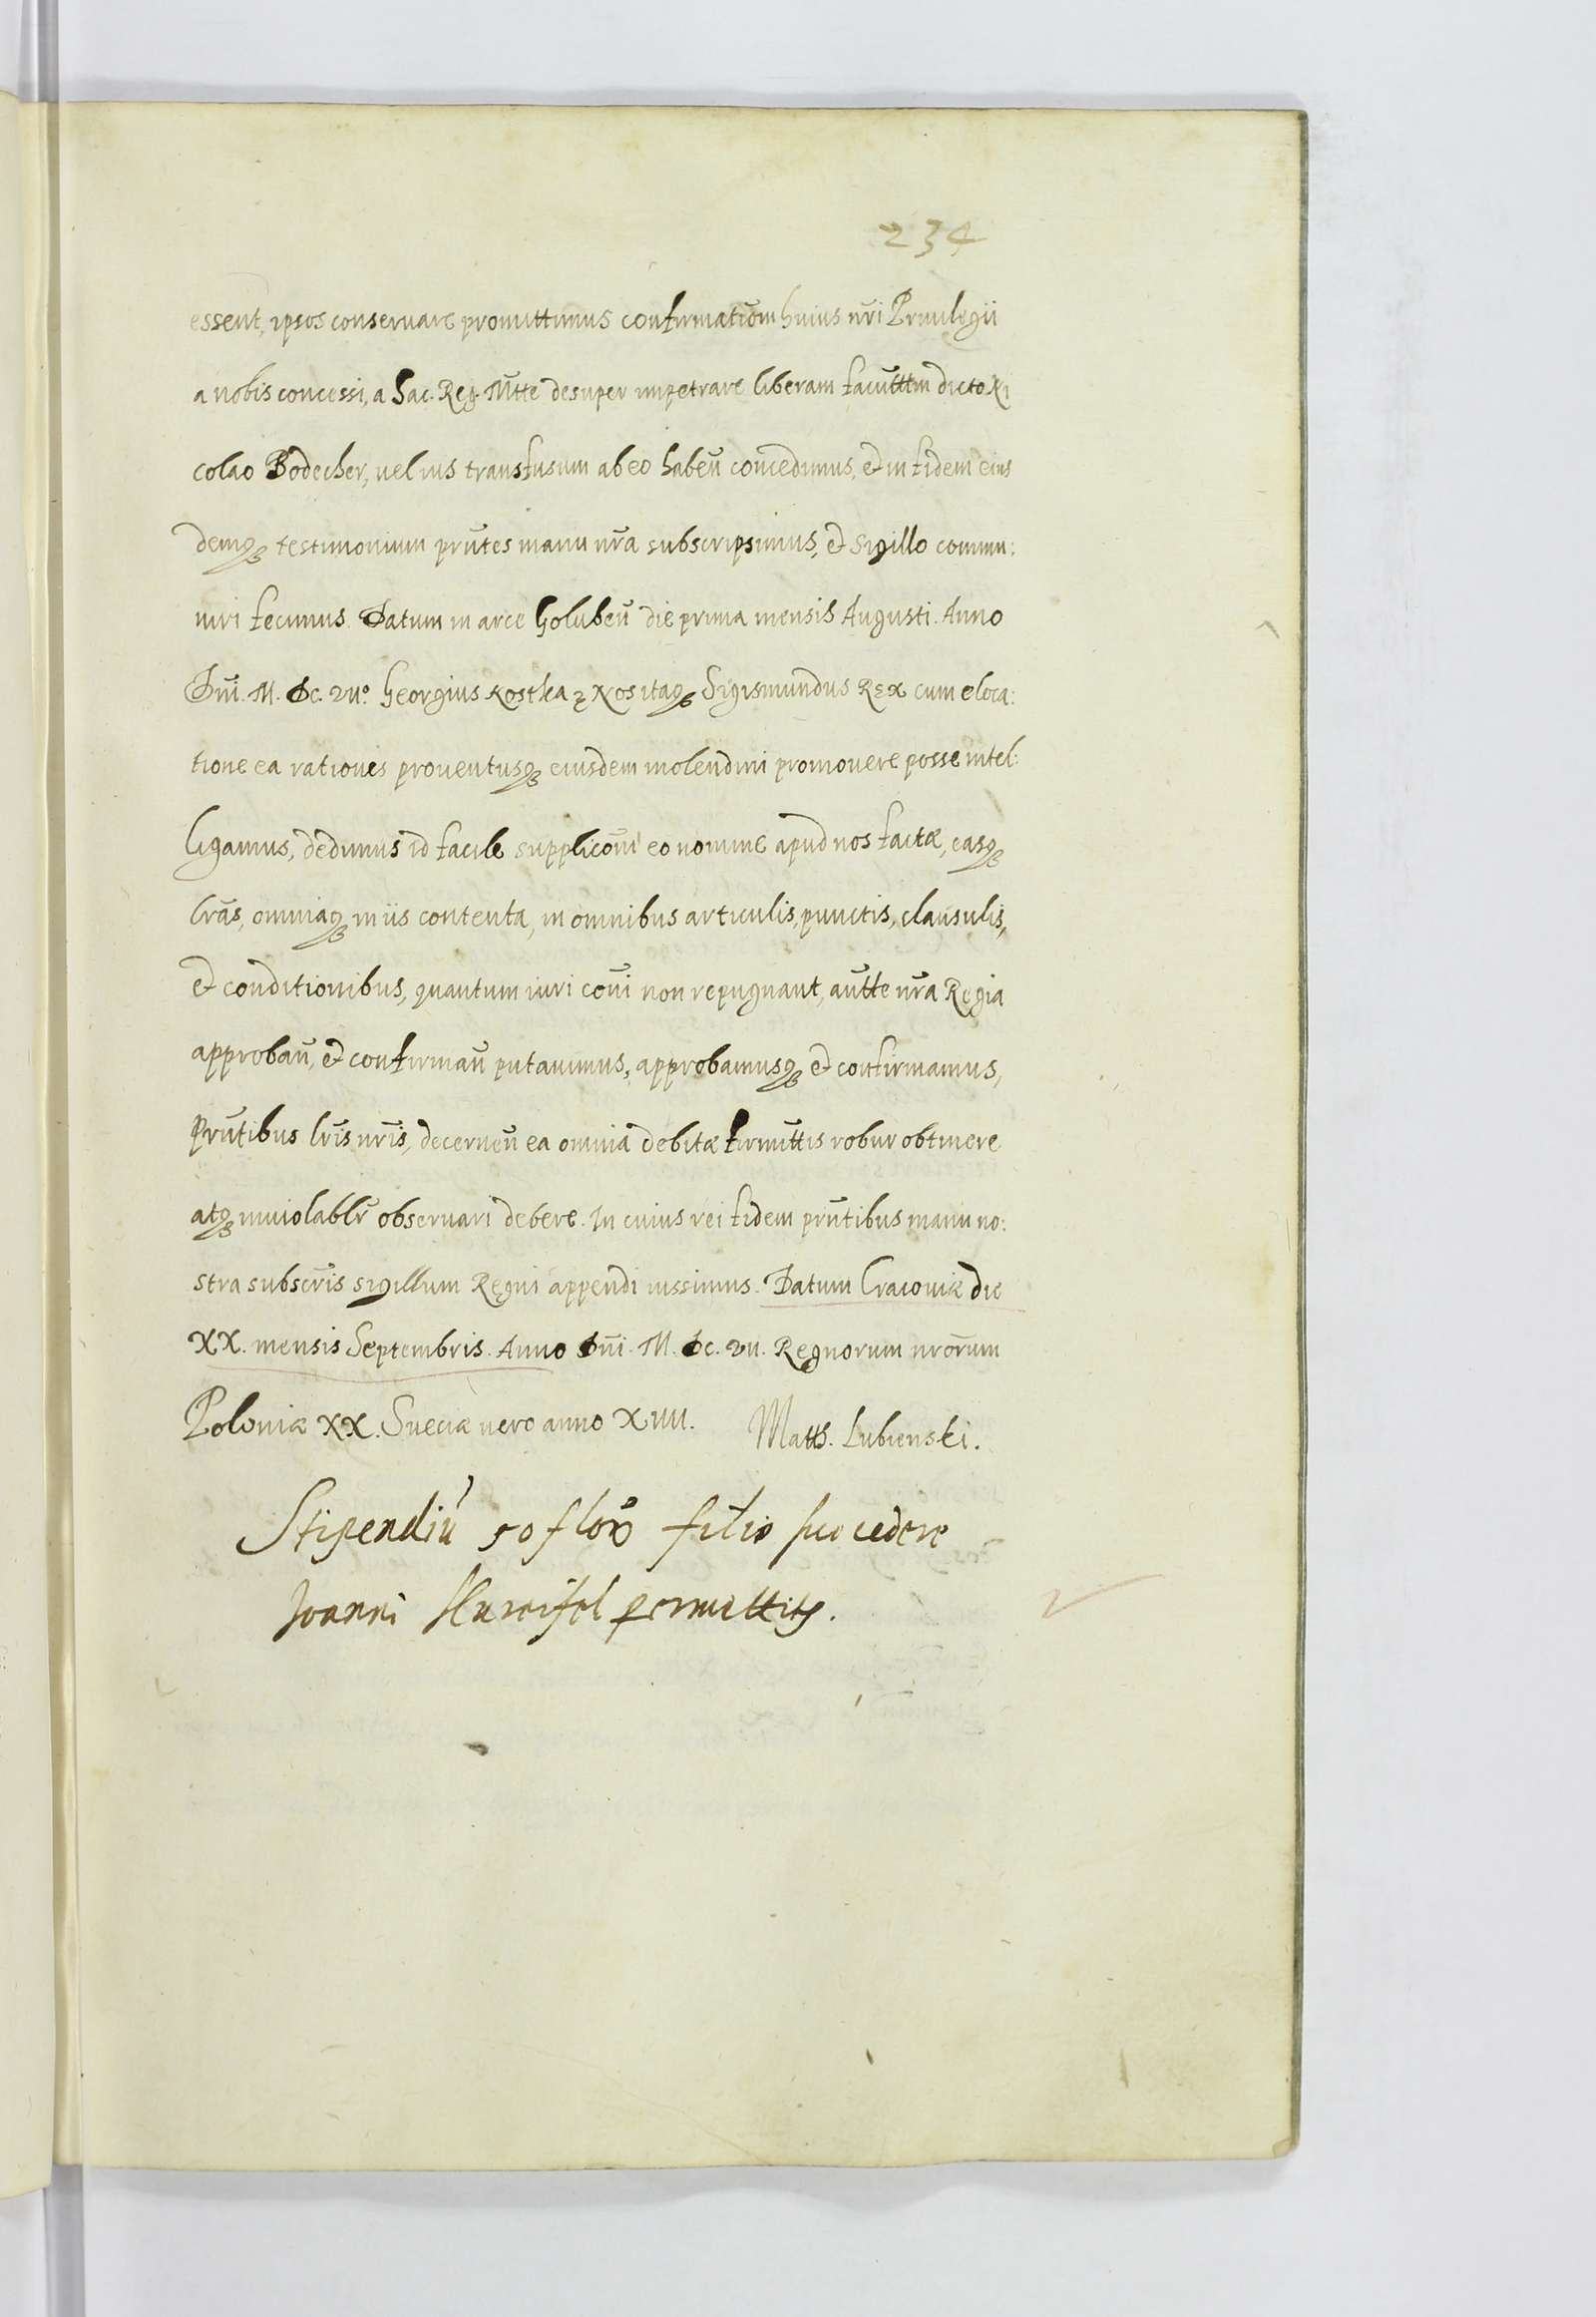 234
essent, ipsos conseruare promittimus confirmatiōm huius nrī Priuilegii
a nobis concessi, a Sac. Reg. Mtte desuper impetrare liberam facultm dicto Ni
colao Bodecher, uel ius transfusum ab eo habeñ concedimus, et in fidem eius
demq3 testimonium prñtes manu nrā subscripsimus, et sigillo commu:
niri fecimus. Datum in arce Golubeñ die prima mensis Augusti. Anno
Dñi. M. Dc. VII.º Georgius Kostka 2 Nos itaq3 Sigismundus Rex cum eloca:
tione ea rationes prouentusq3 eiusdem molendini promouere posse intel:
ligamus, dedimus id facile supplicōni eo nomine apud nos factæ, easq3
lrās, omniaq3 in iis contenta, in omnibus articulis, punctis, clausulis,
et conditionibus, quantum iuri cōi non repugnant, autte nrā Regia
approbañ, et confirmañ putauimus, approbamusq3 et confirmamus,
Prñtibus lrīs nrīs, decerneñ ea omnia debitæ firmittis robur obtinere
atq3 inuiolablr̄ obseruari debere. In cuius rei fidem prñtibus manu no:
stra subscrīs sigillum Regni appendi iussimus. Datum Cracouiæ die
XX. mensis Septembris. Anno Dñi. M. Dc. VII. Regnorum nrōrum
Poloniæ XX. Sueciæ uero anno XIIII. Matts. Lubienski.
Stipendiū 50 flōr filio succedere
Joanni permittitr.